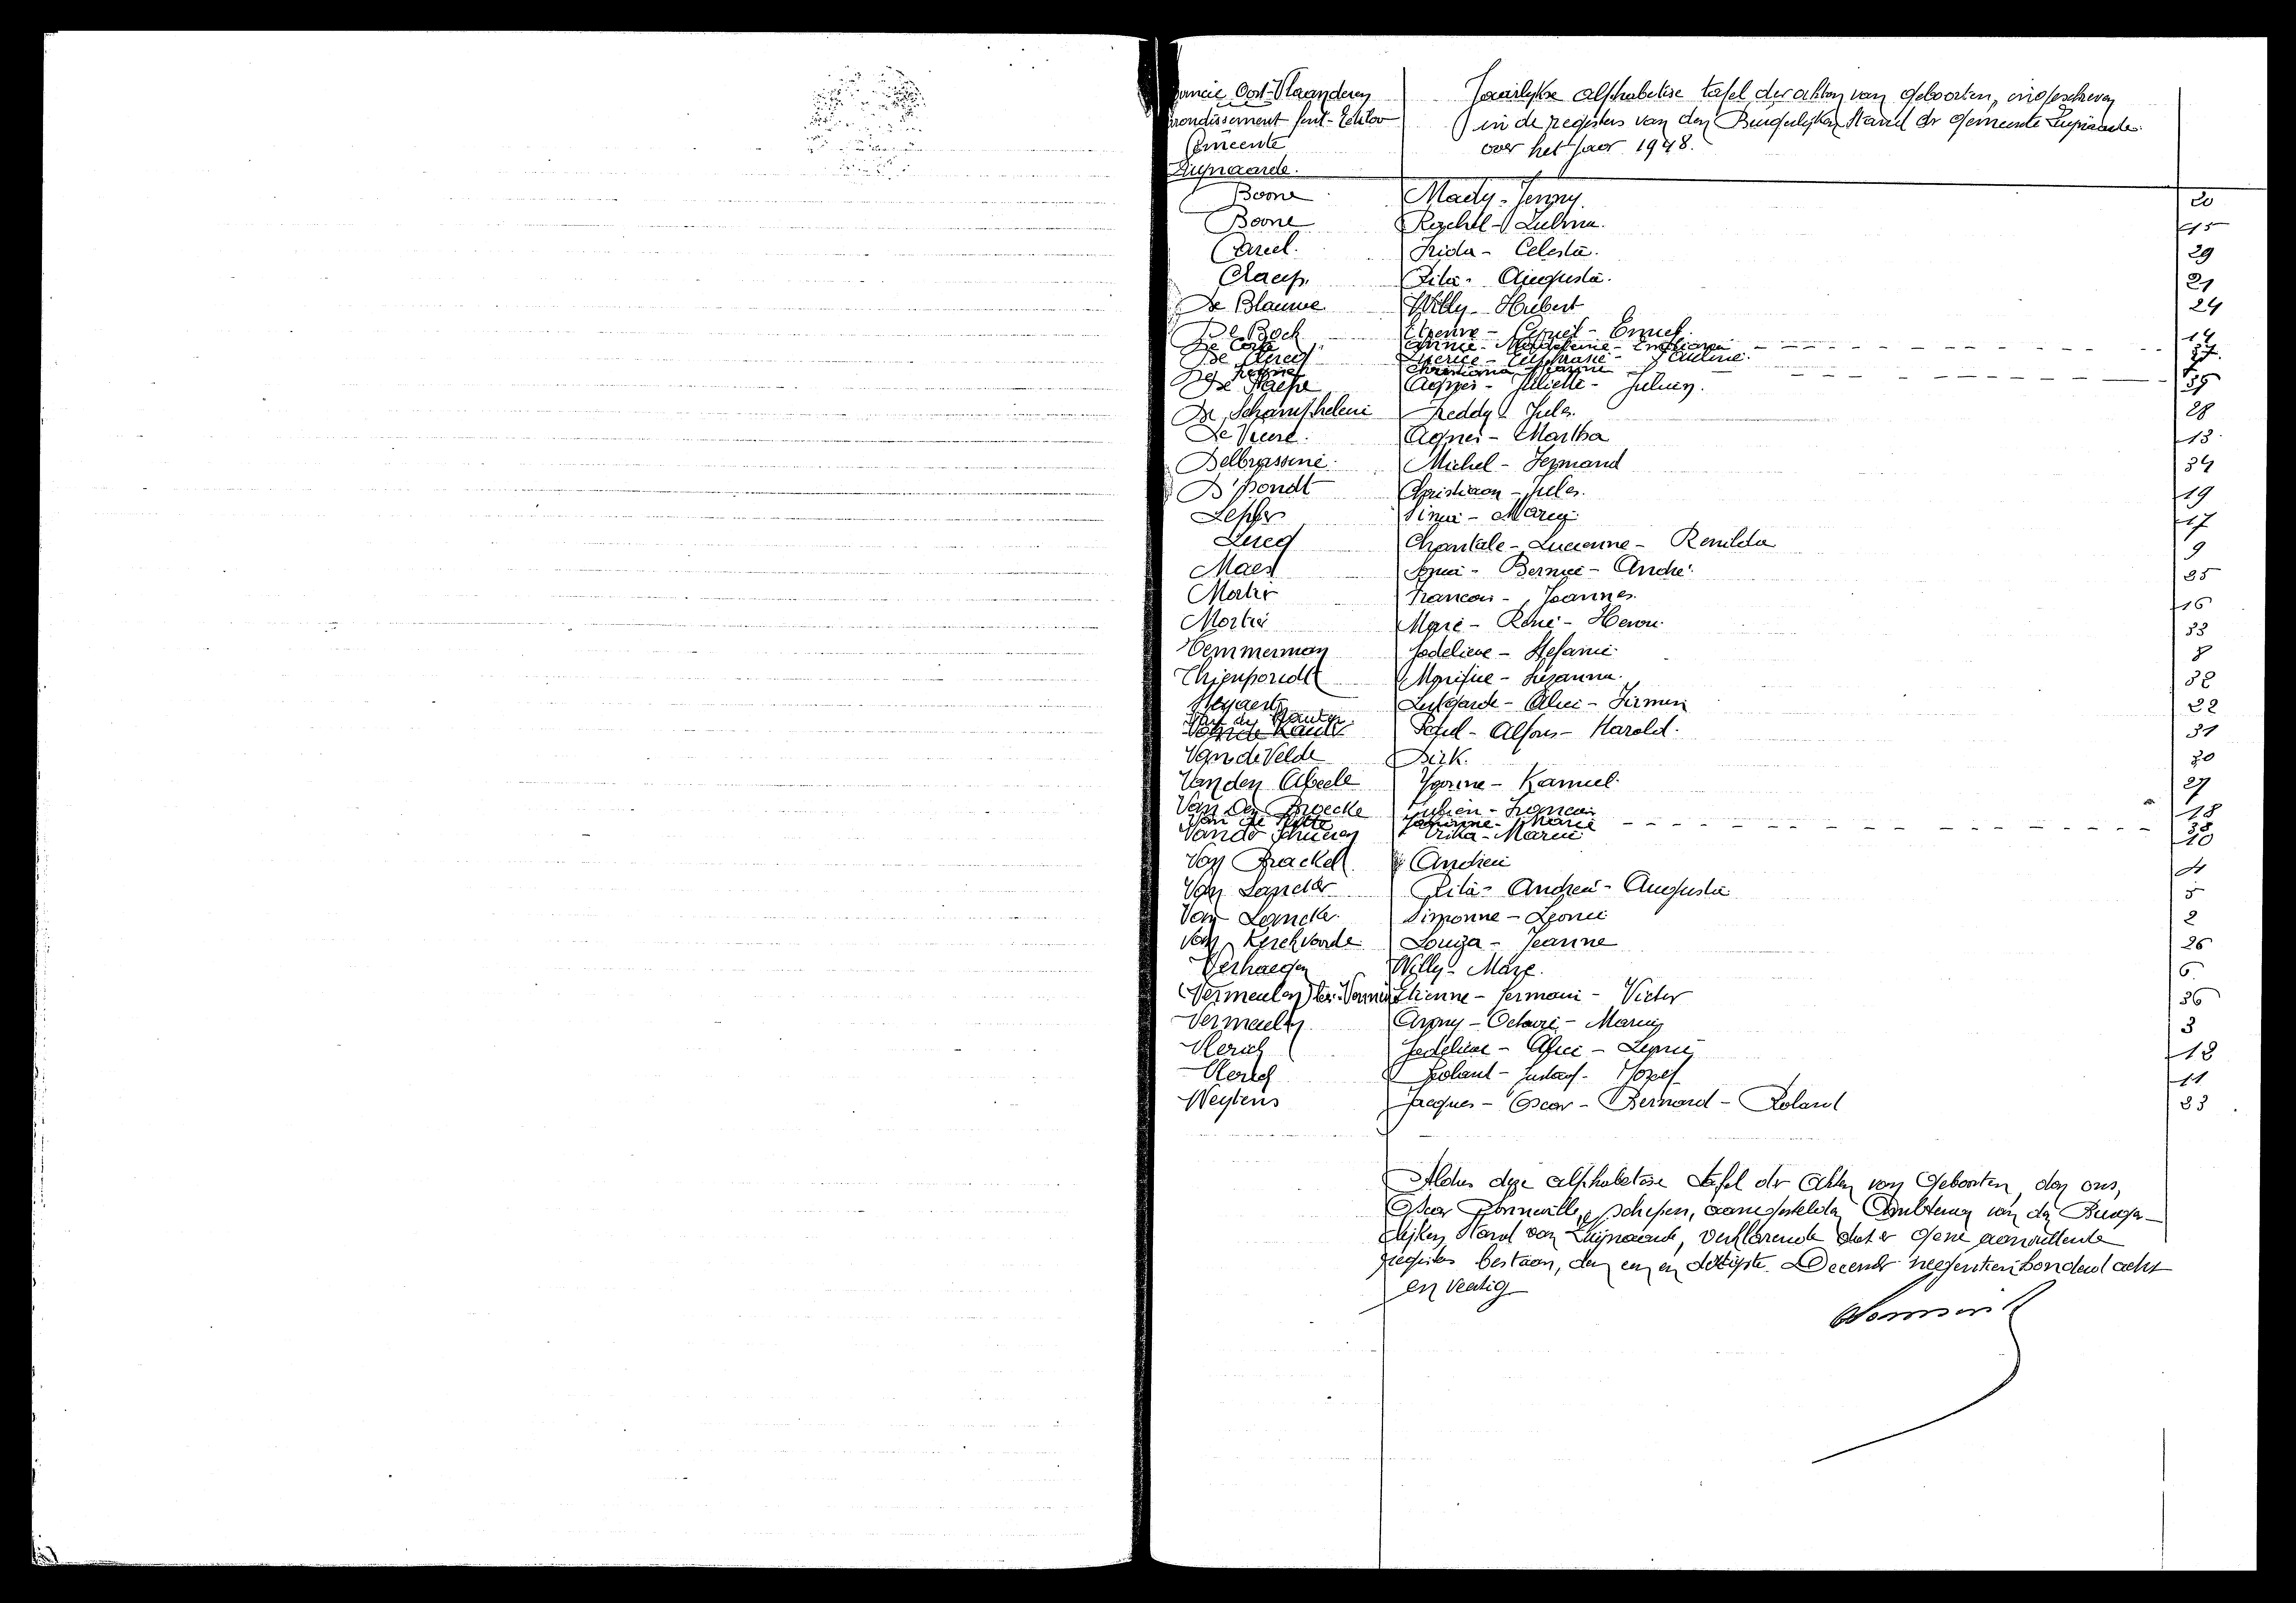 Oost-Vlaanderen
Gemeente
Zwijnaarde.
Jaarlijkse alphabetise tafel der akten van geboorten, ingeschreven
in de registers van den Burgerlijken Stand der gemeente Zwijnaarde
over het jaar 1948.
Boone Mady - Jenny. 20
Boone Rachel - 15
Frida - Celesta. 29
Claeys Rita - Augusta. 21
De Blauwe Willy - Hubert 24
De Bock Etienne - 14
De Corte Annie - Magdalena - 37
De Clercq - Euphrasie - Pauline. 7
Christiana
De Paepe Agnes - Juliette - 35
De Schampheleire Freddy Jules. 28
Agnes - Martha 13
Delbrassine Michel - Fernand 34
D'hondt Christiaan - Jules. 19
17
Lucq Chantale - Lucienne - Renilda 9
Maes - André 25
Mortier Francois - Joannes. 16
Mortier Marc - René - 33
Temmerman Godelieve - Stefanie 8
Thienpondt Monique - Suzanna. 32
Lutgarde - Alice - Firmin 22
Paul - Alfons - Harold. 31
Van de Velde Dirk. 30
Van den Abeele Yvonne - Kamiel 27
Van Den Broecke Julien - Francois 18
Van de Putte Jeannine - Marie 38
Maria 10
Van Brackel Andrea 4
Van Lancker Rita - Andrea - Augusta 5
Van Lancker Simonne - Leonie 2
Van Kerckvoorde Louiza - Jeanne 26
Verhaegen Willy - Marc. 6
(Vermeulen) Etienne - Germain - Victor 36
Vermeulen - Octavie - 3
Vlerick Godelieve - Alice - 12
Vlerick Roland - Gustaaf - Jozef 11
Weytens Jacques - Oscar - Bernard - Roland 23
Aldus deze alphabetise tafel der akten van geboorten, door ons,
Oscar Bonneville, schepen, aangestelden Ambtenaar van den Burger-
lijken Stand van Zwijnaarde, verklarende dat er gene aanvullende
registers bestaan, den een en dertigste December negentienhonderd acht
en veertig